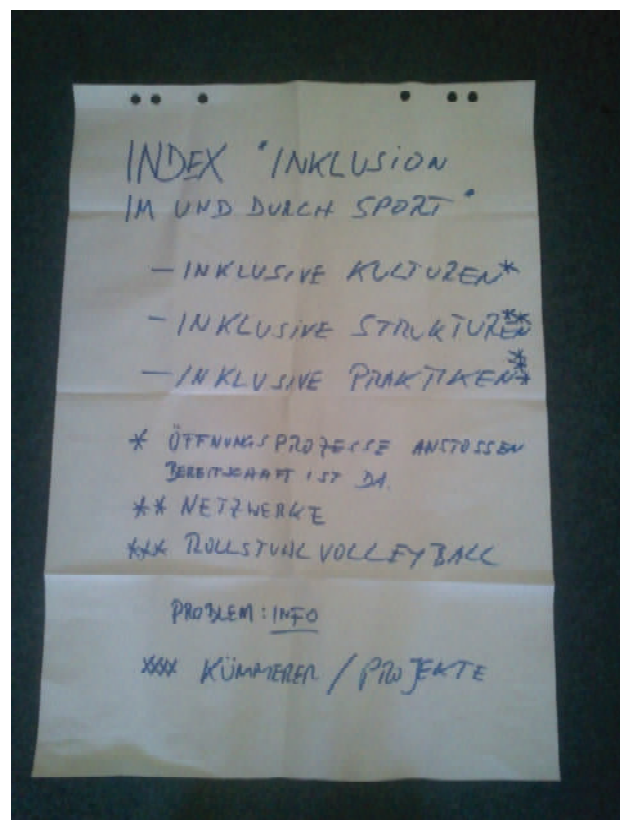 INDEX "INKLUSION
IM UND DURCH SPORT"
— INKLUSIVE KULTUREN*
— INKLUSIVE STRUKTUREN**
— INKLUSIVE PRAKTIKEN***
* ÖFFNUNGSPROZESSE ANSTOSSEN
BEREITSCHAFT IST DA.
** NETZWERKE
*** ROLLSTUHLVOLLEYBALL
PROBLEM: INFO
*** KÜMMERER / PROJEKTE